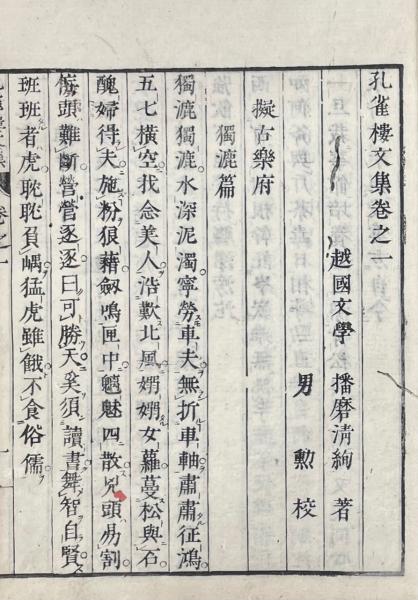 孔雀樓文集卷之一
越國文學 播磨清絢 著
男 勲 校
擬古樂府
獨漉篇
獨漉獨漉水深泥濁寧勞車夫無折車軸肅肅征鴻
五七橫空我念美人浩歎北風嫋嫋女蘿蔓松與石
醜婦得夫施粉狼藉劔鳴匣中魑魅四散兕頭易割
頭難斷營營逐逐曰可勝天奚須讀書舞智自賢
班班者虎耽耽負嵎猛虎雖餓不食俗儒